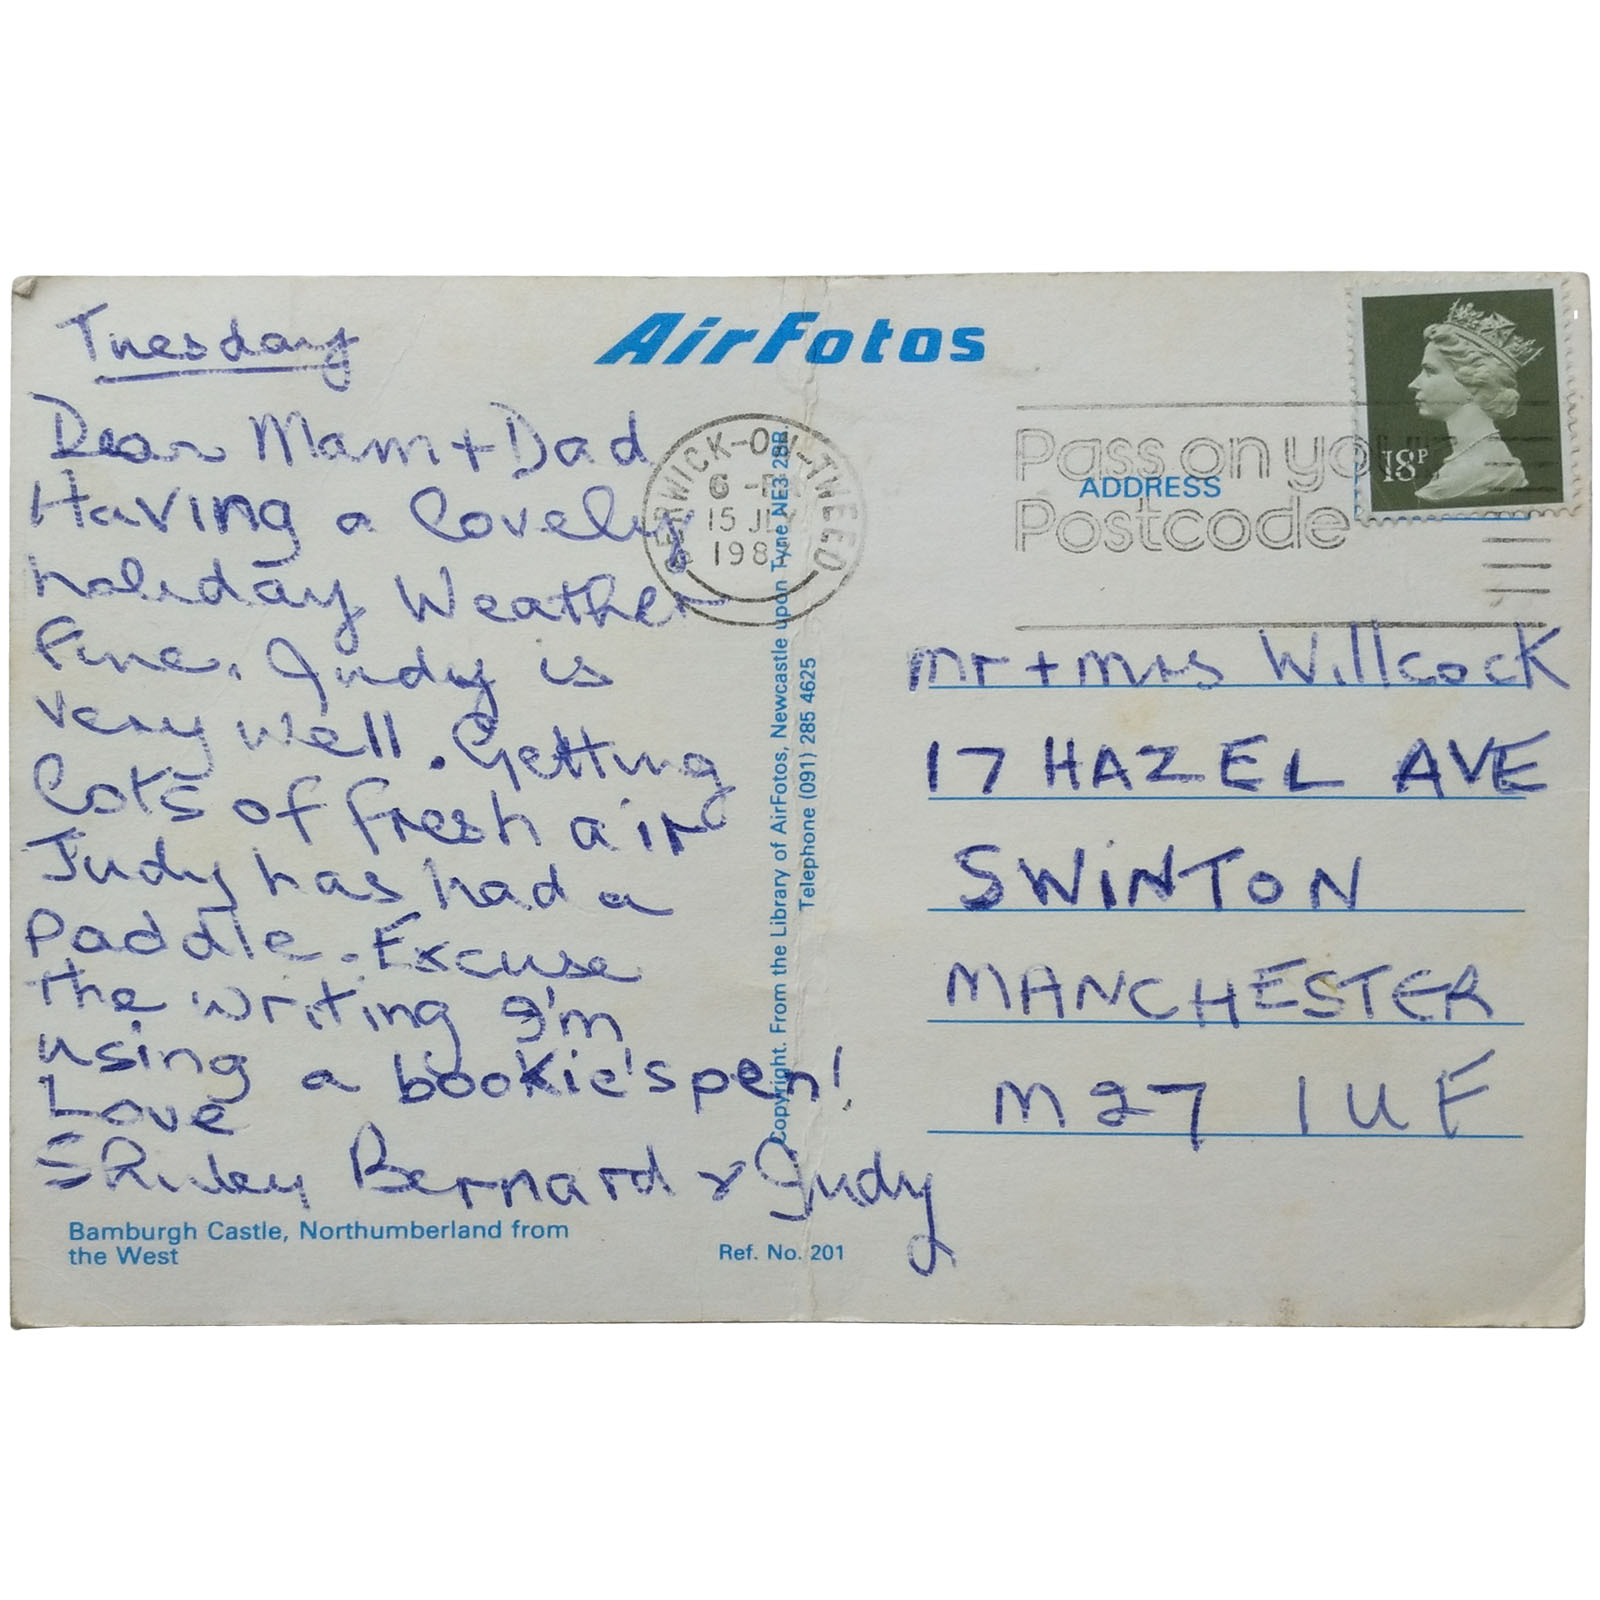 Tuesday
Dear Mam + Dad
Having a lovely
holiday Weather
fine. Judy is
very well. Getting
lots of fresh air
Judy has had a
paddle. Excuse
the writing I'm
using a bookie's pen!
Love
Shirley Bernard & Judy
Bamburgh Castle, Northumberland from
the West
Ref. No. 201
AirFotos
Copyright. From the Library of AirFotos, Newcastle upon Tyne NE3 2BR
Telephone (091) 285 4625
BERWICK-ON-TWEED
15
Pass on
Postcode
18P
ADDRESS
Mr + Mrs Willcock
17 HAZEL AVE
SWINTON
MANCHESTER
M27 1UF